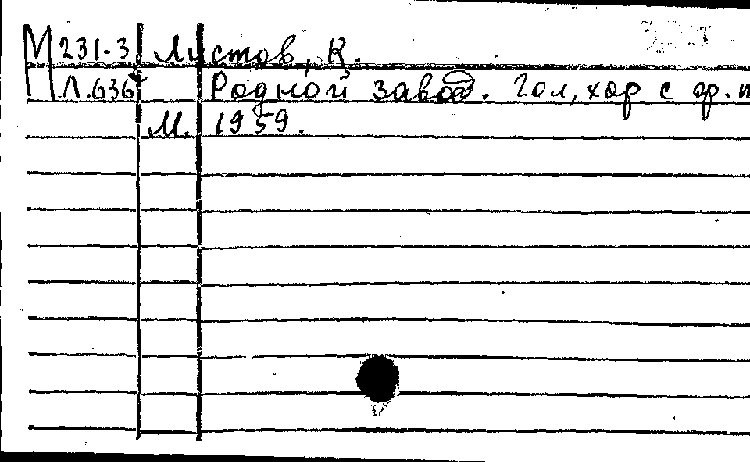 М 231-3 Листов, К.
Л.636 Родной завод. Гол, хор с ф.п
М. 1959.